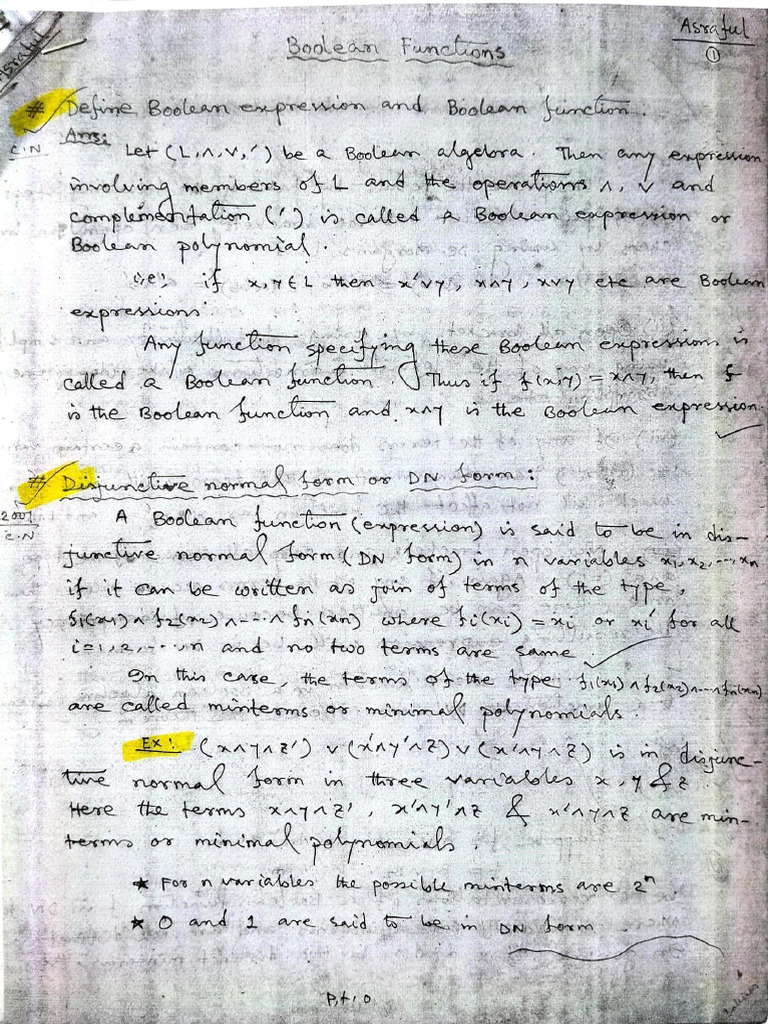 Asraful
Asraful
Boolean Functions
1
# Define Boolean expression and Boolean function.
Ans:
C.N
Let (L,∧,∨,') be a Boolean algebra. Then any expression
involving members of L and the operations ∧, ∨ and
complementation (') is called a Boolean expression or
Boolean polynomial.
i.e; if x,y∈L then x'∨y, x∧y, x∨y etc are Boolean
expressions
Any function specifying these Boolean expressions is
called a Boolean function. Thus if f(x,y) = x∧y, then f
is the Boolean function and x∧y is the Boolean expression.
# Disjunctive normal form or DN form:
2001
C.N
A Boolean function (expression) is said to be in dis-
junctive normal form (DN form) in n variables x₁, x₂, ..., xn
if it can be written as join of terms of the type,
f₁(x₁) ∧ f₂(x₂) ∧ -- ∧ fn(xn) where fi(xi) = xi or xi' for all
i=1,2,...,n and no two terms are same
In this case, the terms of the type f₁(x₁) ∧ f₂(x₂) ∧ -- ∧ fn(xn)
are called minterms or minimal polynomials.
Ex: (x∧y∧z') ∨ (x'∧y'∧z) ∨ (x'∧y∧z) is in disjunc-
tive normal form in three variables x, y & z
Here the terms x∧y∧z', x'∧y'∧z & x'∧y∧z are min-
terms or minimal polynomials.
* For n variables the possible minterms are 2ⁿ
* 0 and 1 are said to be in DN form
P.t.o